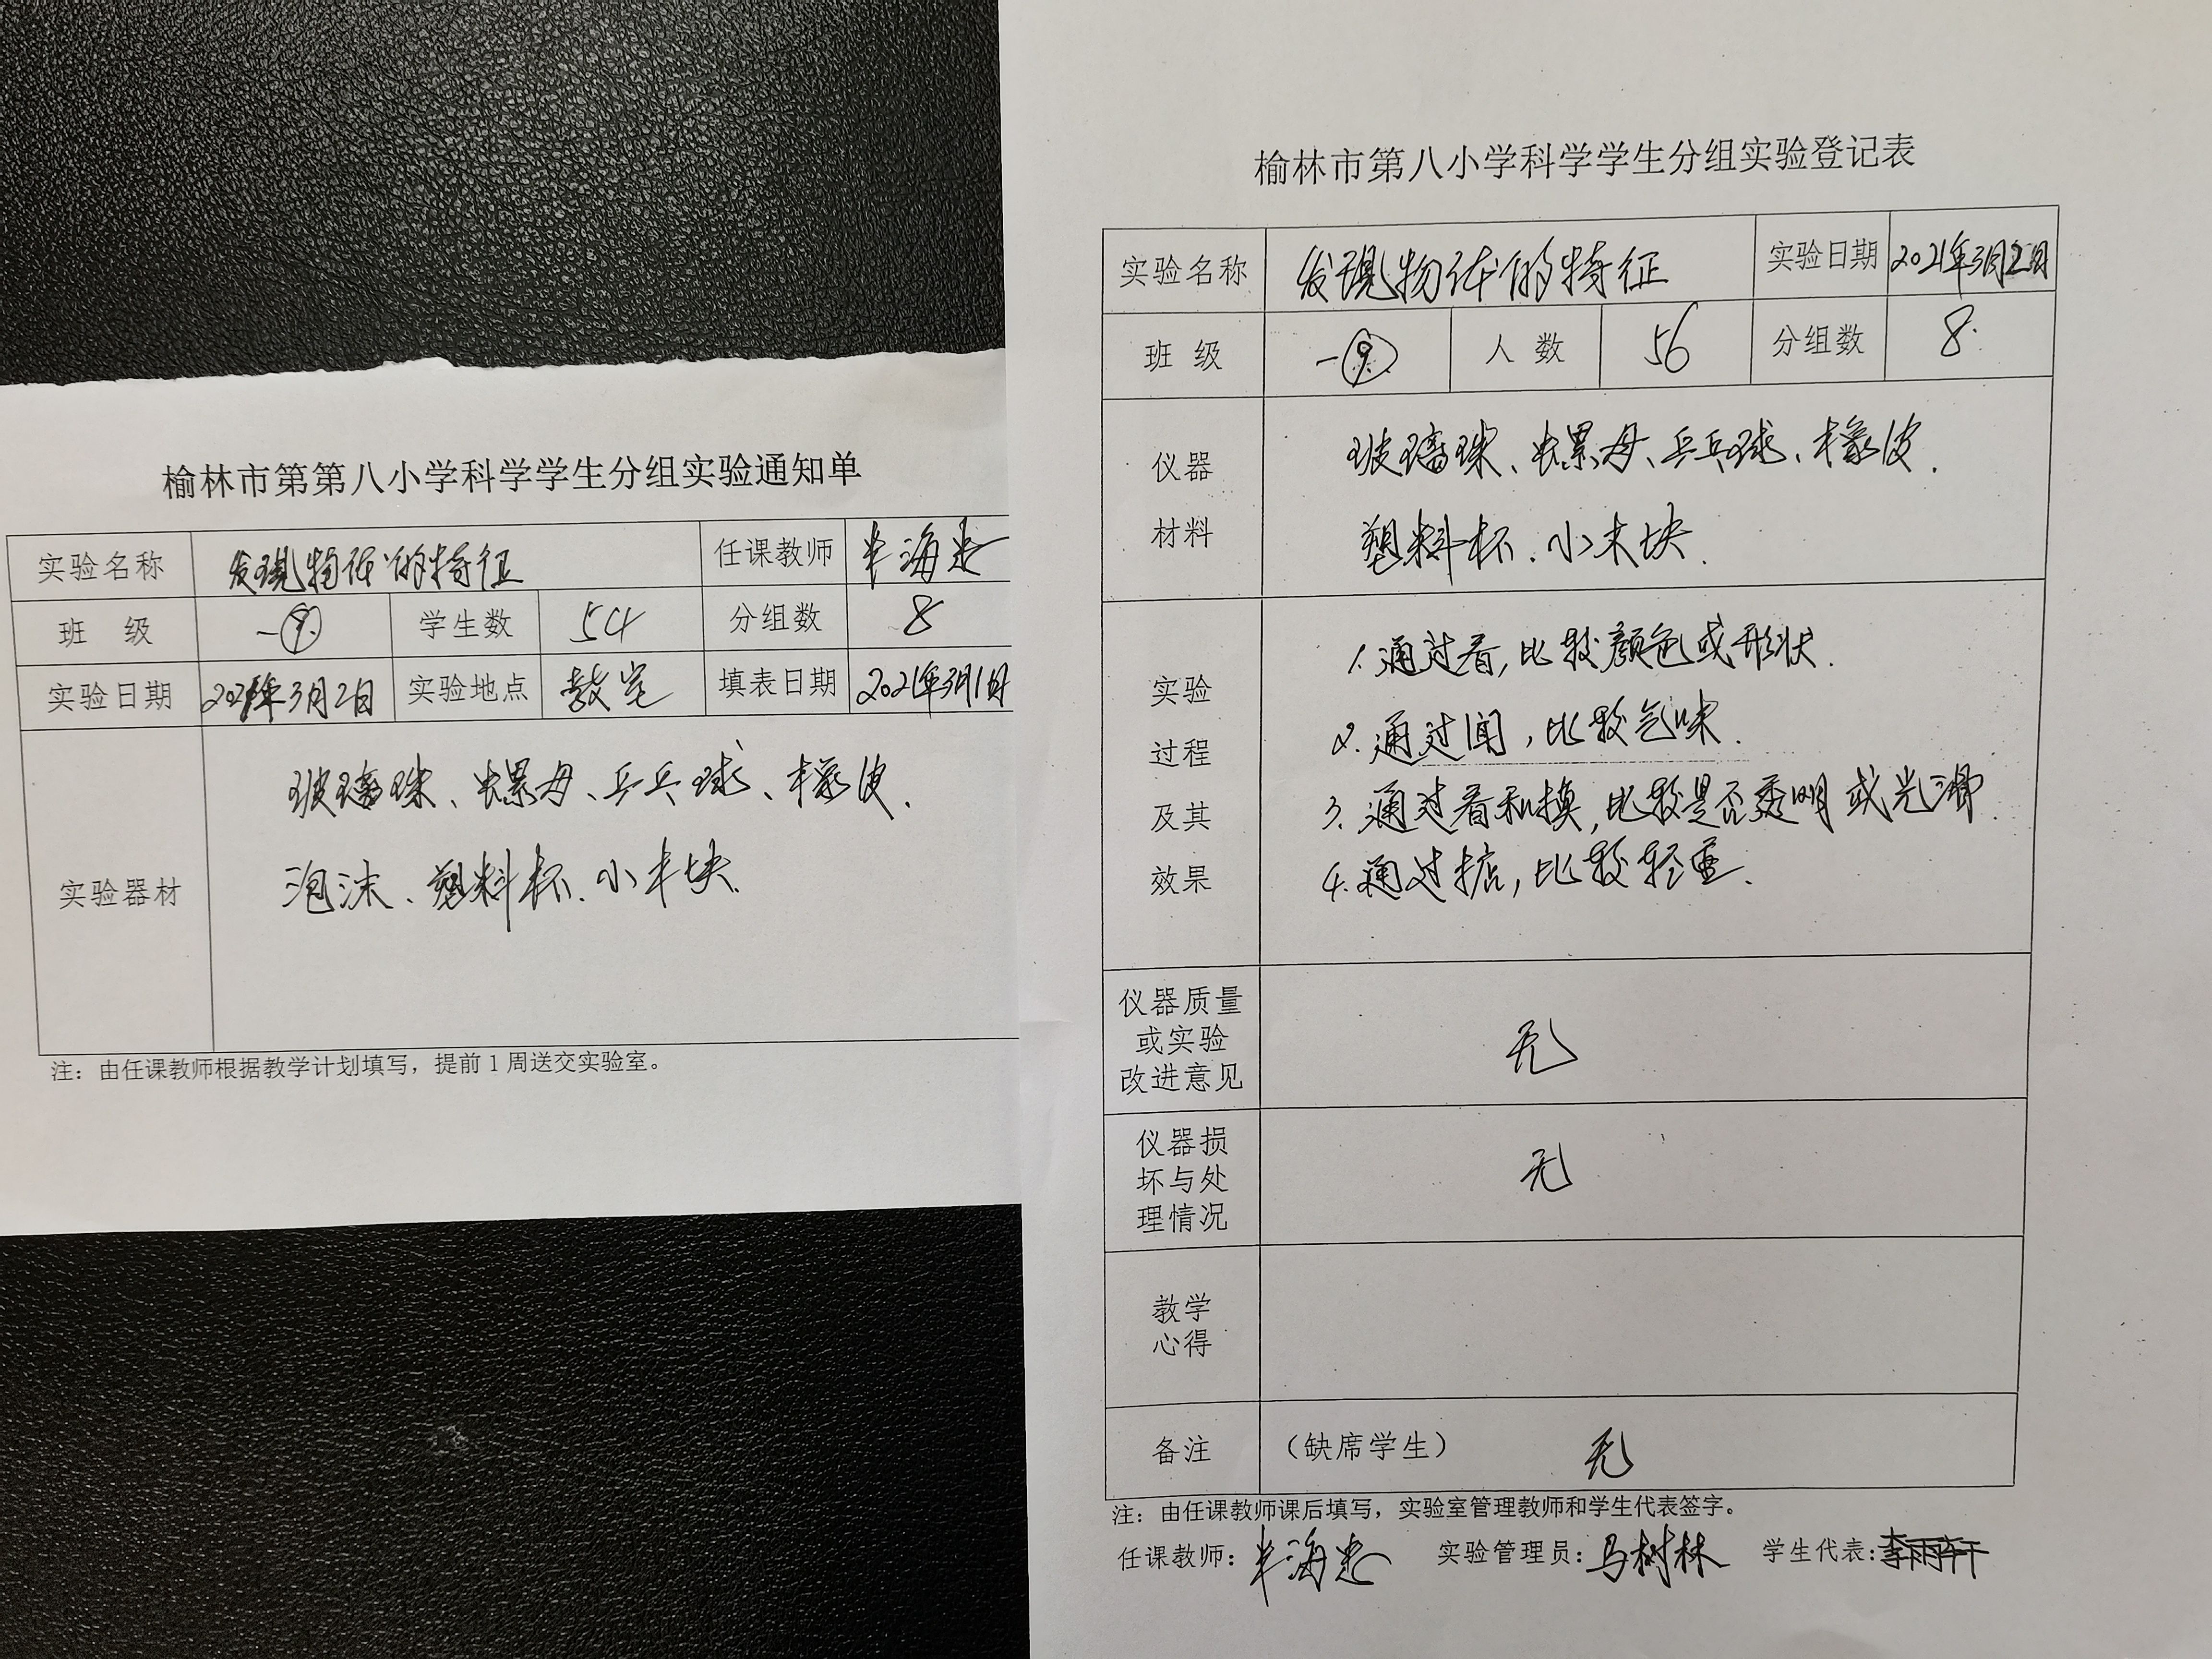 榆林市第第八小学科学学生分组实验通知单
实验名称 发现物体的特征 任课教师 海忠
班 级 一⑨ 学生数 54 分组数 8
实验日期 2021年3月2日 实验地点 教室 填表日期 2021年3月1日
玻璃珠、螺母、乒乓球、橡皮、
实验器材 泡沫、塑料杯、小木块
注：由任课教师根据教学计划填写，提前1周送交实验室。
榆林市第八小学科学学生分组实验登记表
实验名称 发现物体的特征 实验日期 2021年3月2日
班 级 一⑨ 人 数 56 分组数 8
仪器 玻璃珠、螺母、乒乓球、橡皮、
材料 塑料杯、小木块.
1.通过看,比较颜色或形状.
实验 2.通过闻,比较气味.
过程
及其 3.通过看和摸,比较是否透明或光滑.
效果 4.通过掂,比较轻重.
仪器质量
或实验 无
改进意见
仪器损
坏与处 无
理情况
教学
心得
备注 （缺席学生） 无
注：由任课教师课后填写，实验室管理教师和学生代表签字。
任课教师: 海忠 实验管理员: 马树林 学生代表: 李雨轩